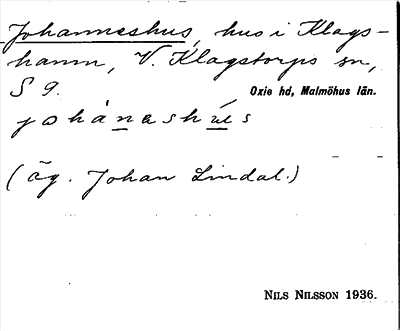 Johanneshus, hus i Klags-
hamn, V. Klagstorps sn,
S 9.
Oxie hd, Malmöhus län.
johànashús
(äg. Johan Lindal.)
NILS NILSSON 1936.